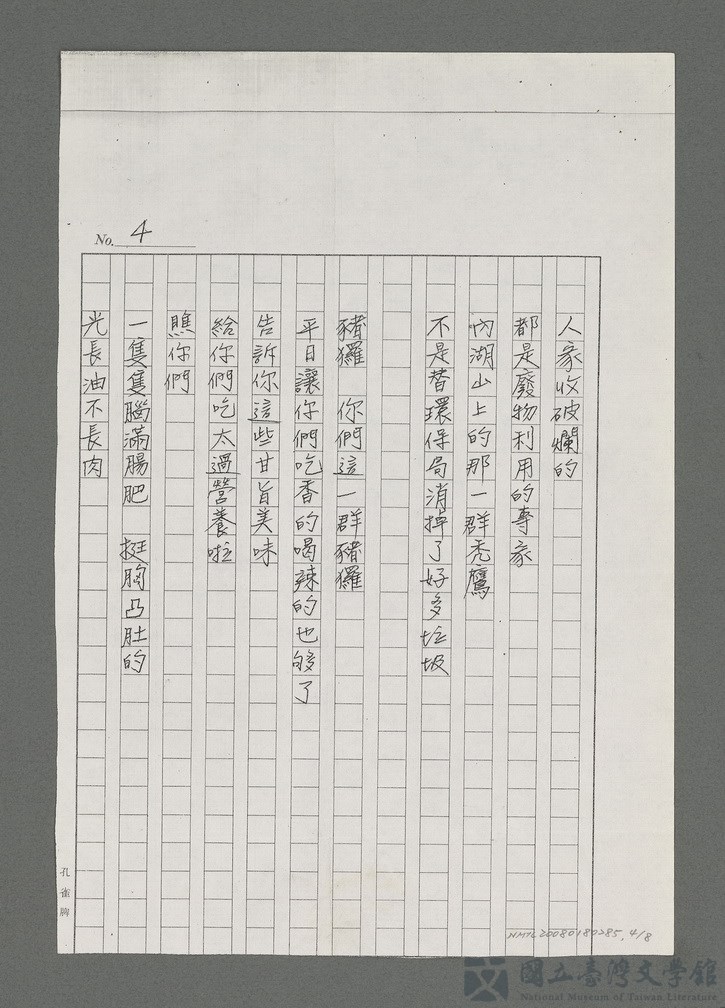 No. 4
人家收破爛的
都是廢物利用的專家
內湖山上的那一群禿鷹
不是替環保局消掉了好多垃圾
豬玀 你們這一群豬玀
平日讓你們吃香的喝辣的也够了
告訴你這些甘旨美味
給你們吃太過營養啦
瞧你們
一隻隻腦滿腸肥 挺胸凸肚的
光長油不長肉
孔雀牌
NMTL20080180285, 4/8
國立臺灣文學館
National Museum of Taiwan Literature